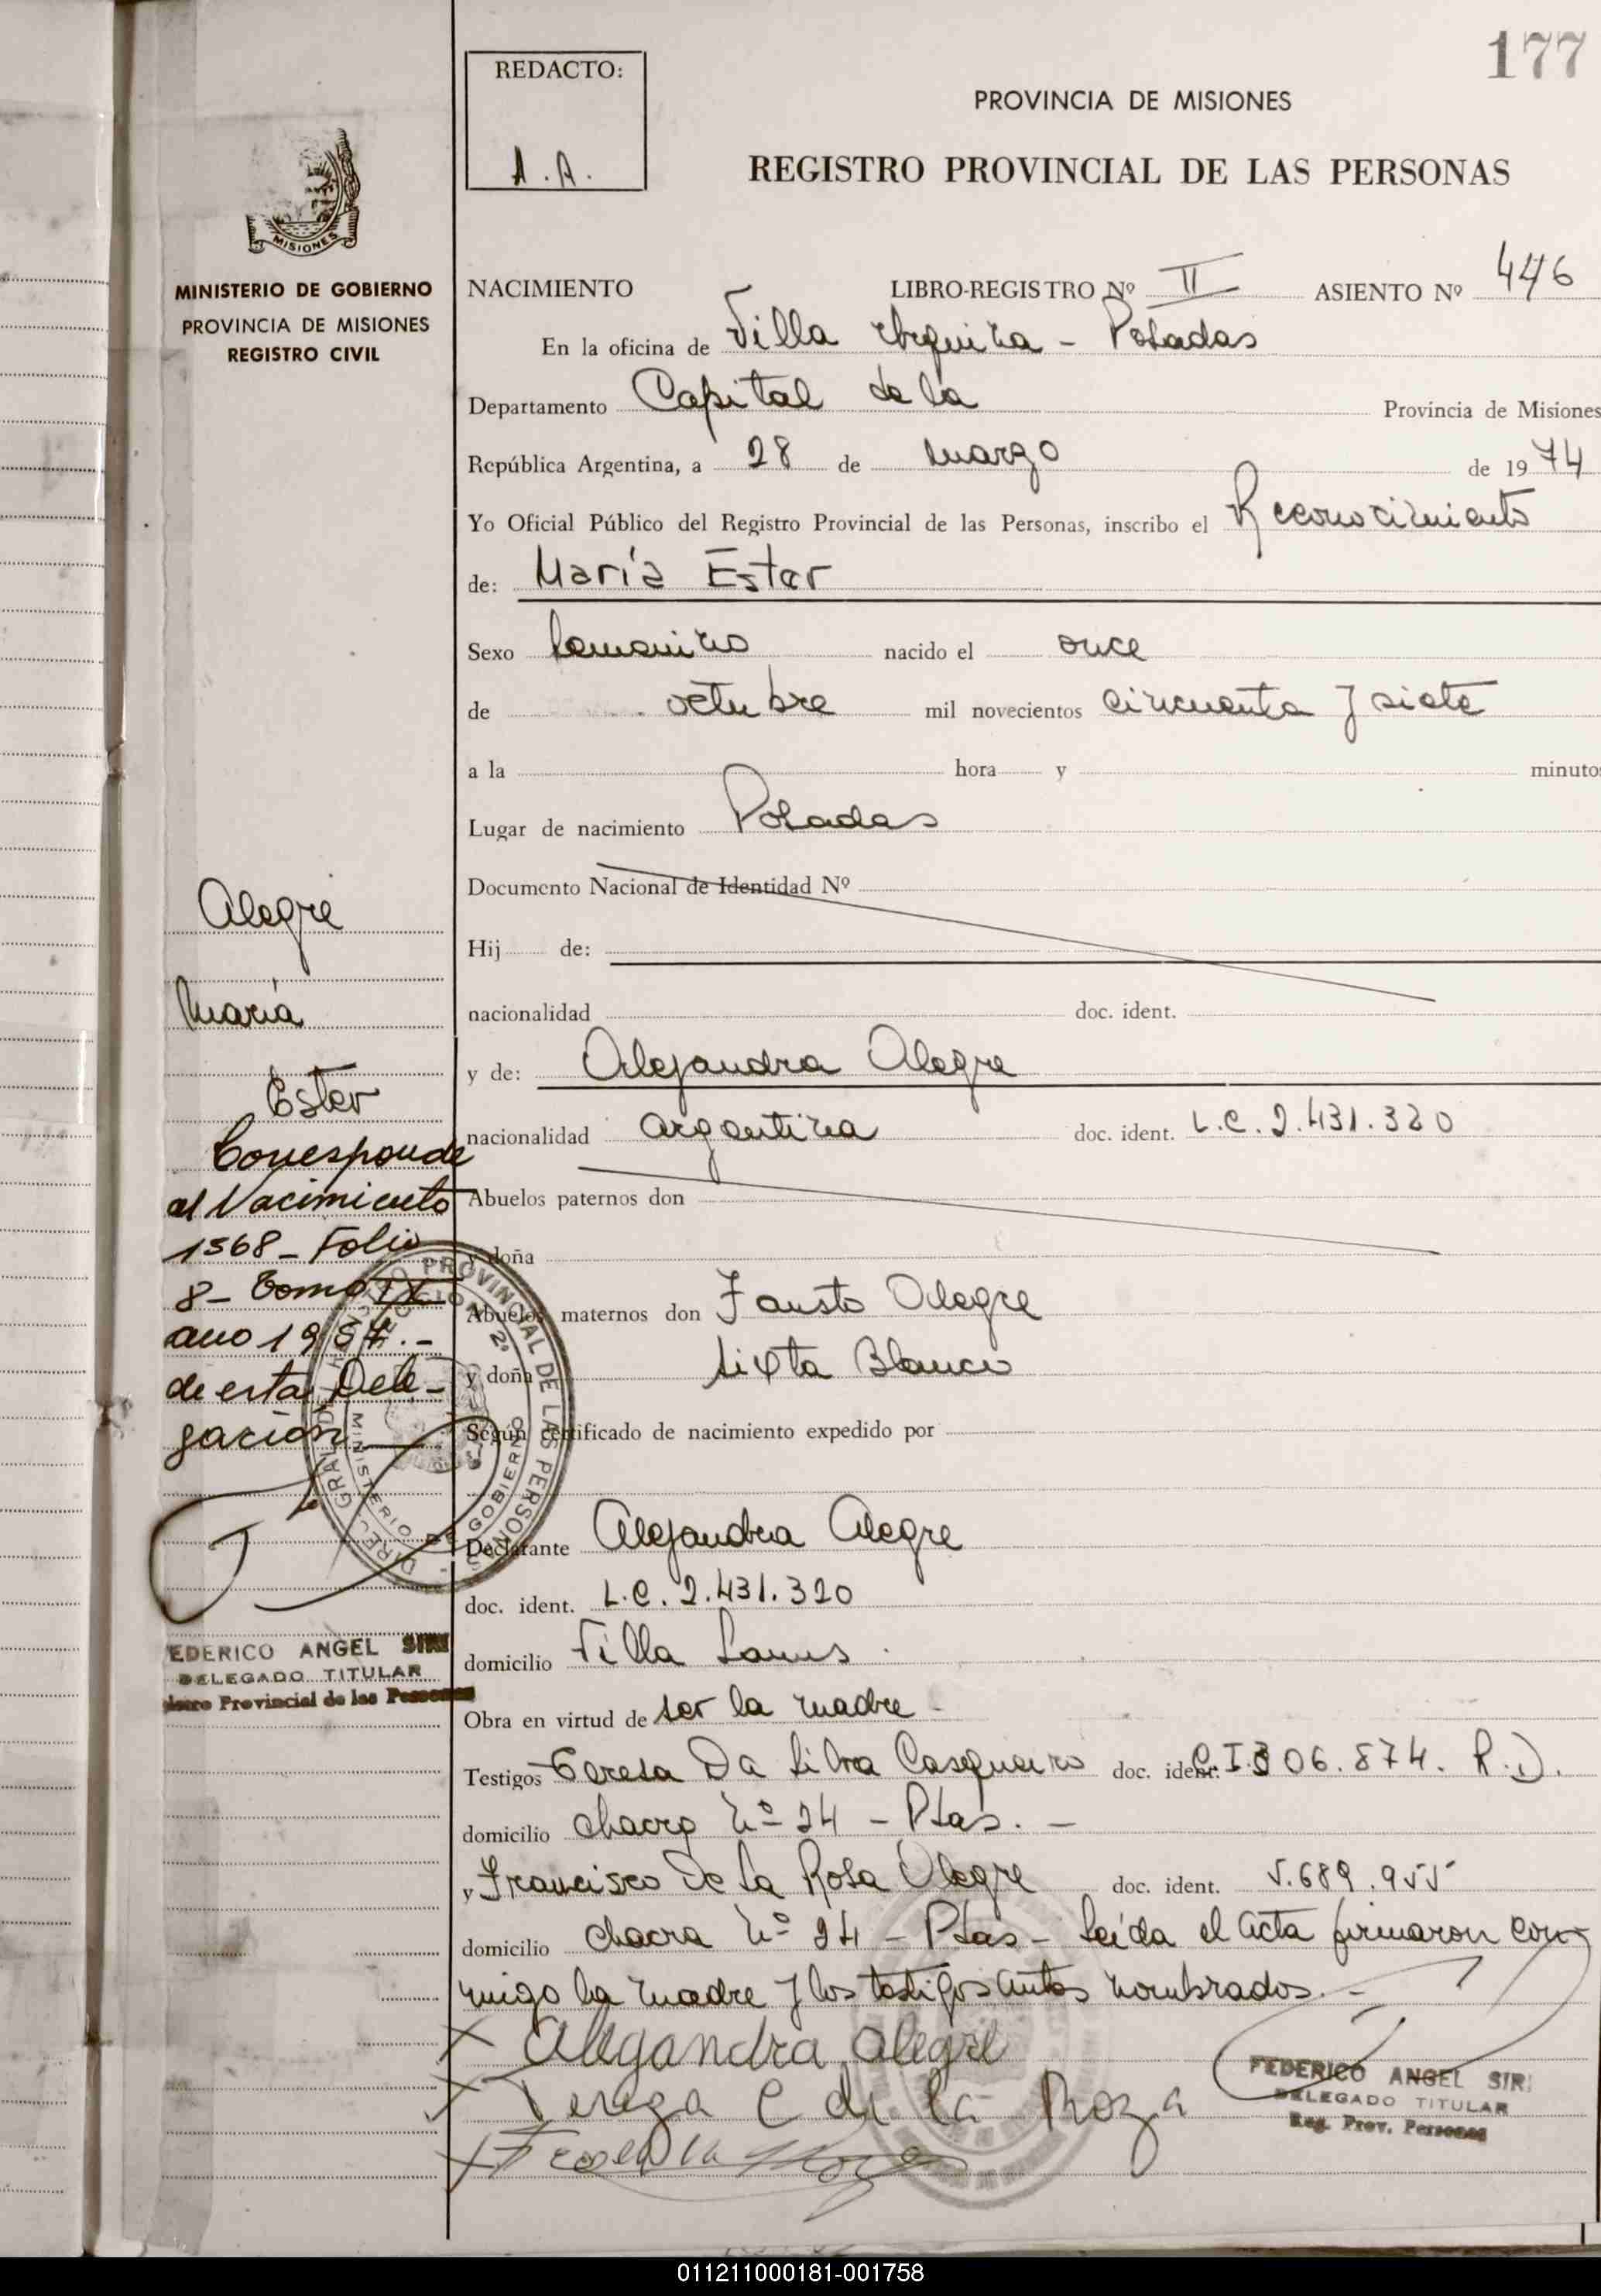 177
REDACTO:
A.A.
PROVINCIA DE MISIONES
REGISTRO PROVINCIAL DE LAS PERSONAS
MISIONES
MINISTERIO DE GOBIERNO
PROVINCIA DE MISIONES
REGISTRO CIVIL
NACIMIENTO LIBRO-REGISTRO Nº II ASIENTO Nº 446
En la oficina de Villa Urquiza - Posadas
Departamento Capital de la Provincia de Misiones
República Argentina, a 28 de marzo de 1974
Yo Oficial Público del Registro Provincial de las Personas, inscribo el Reconocimiento
de: María Ester
Sexo femenino nacido el once
de octubre mil novecientos cincuenta y siete
a la hora y minutos
Lugar de nacimiento Posadas
Documento Nacional de Identidad Nº
Hij de:
nacionalidad doc. ident.
y de: Alejandra Alegre
nacionalidad argentina doc. ident. L.C. 2.431.320
Abuelos paternos don
y doña
Abuelos maternos don Fausto Alegre
y doña Sixta Blanco
Según certificado de nacimiento expedido por
Declarante Alejandra Alegre
doc. ident. L.C. 2.431.320
domicilio Villa Lanus
Obra en virtud de ser la madre -
Testigos Teresa Da Silva Casqueiro doc. ident. C.I. 306.874. R.D.
domicilio chacra nº 24 - Pdas. -
y Francisco De La Rosa Alegre doc. ident. 5.689.955
domicilio chacra nº 24 - Pdas - Leída el acta firmaron con-
migo la madre y los testigos antes nombrados. -
X Alegandra alegre
X Tereza C di la Roza
X
FEDERICO ANGEL SIRI
DELEGADO TITULAR
Reg. Prov. Personas
Alegre
María
Ester
Corresponde
al Nacimiento
1568 - Folio
8 - Tomo IX
año 1957. -
de esta Dele-
gación
REGISTRO PROVINCIAL DE LAS PERSONAS
MINISTERIO DE GOBIERNO
EDERICO ANGEL SIRI
DELEGADO TITULAR
istro Provincial de las Personas
011211000181-001758